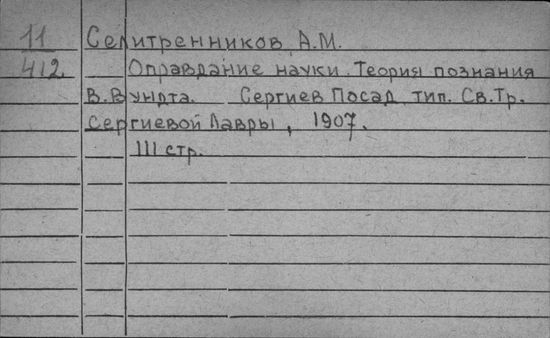 11
412
Селитренников, А.М.
Оправдание науки. Теория познания
В.Вундта. Сергиев Посад, тип. Св.Тр.
Сергиевой Лавры, 1907.
111 стр.